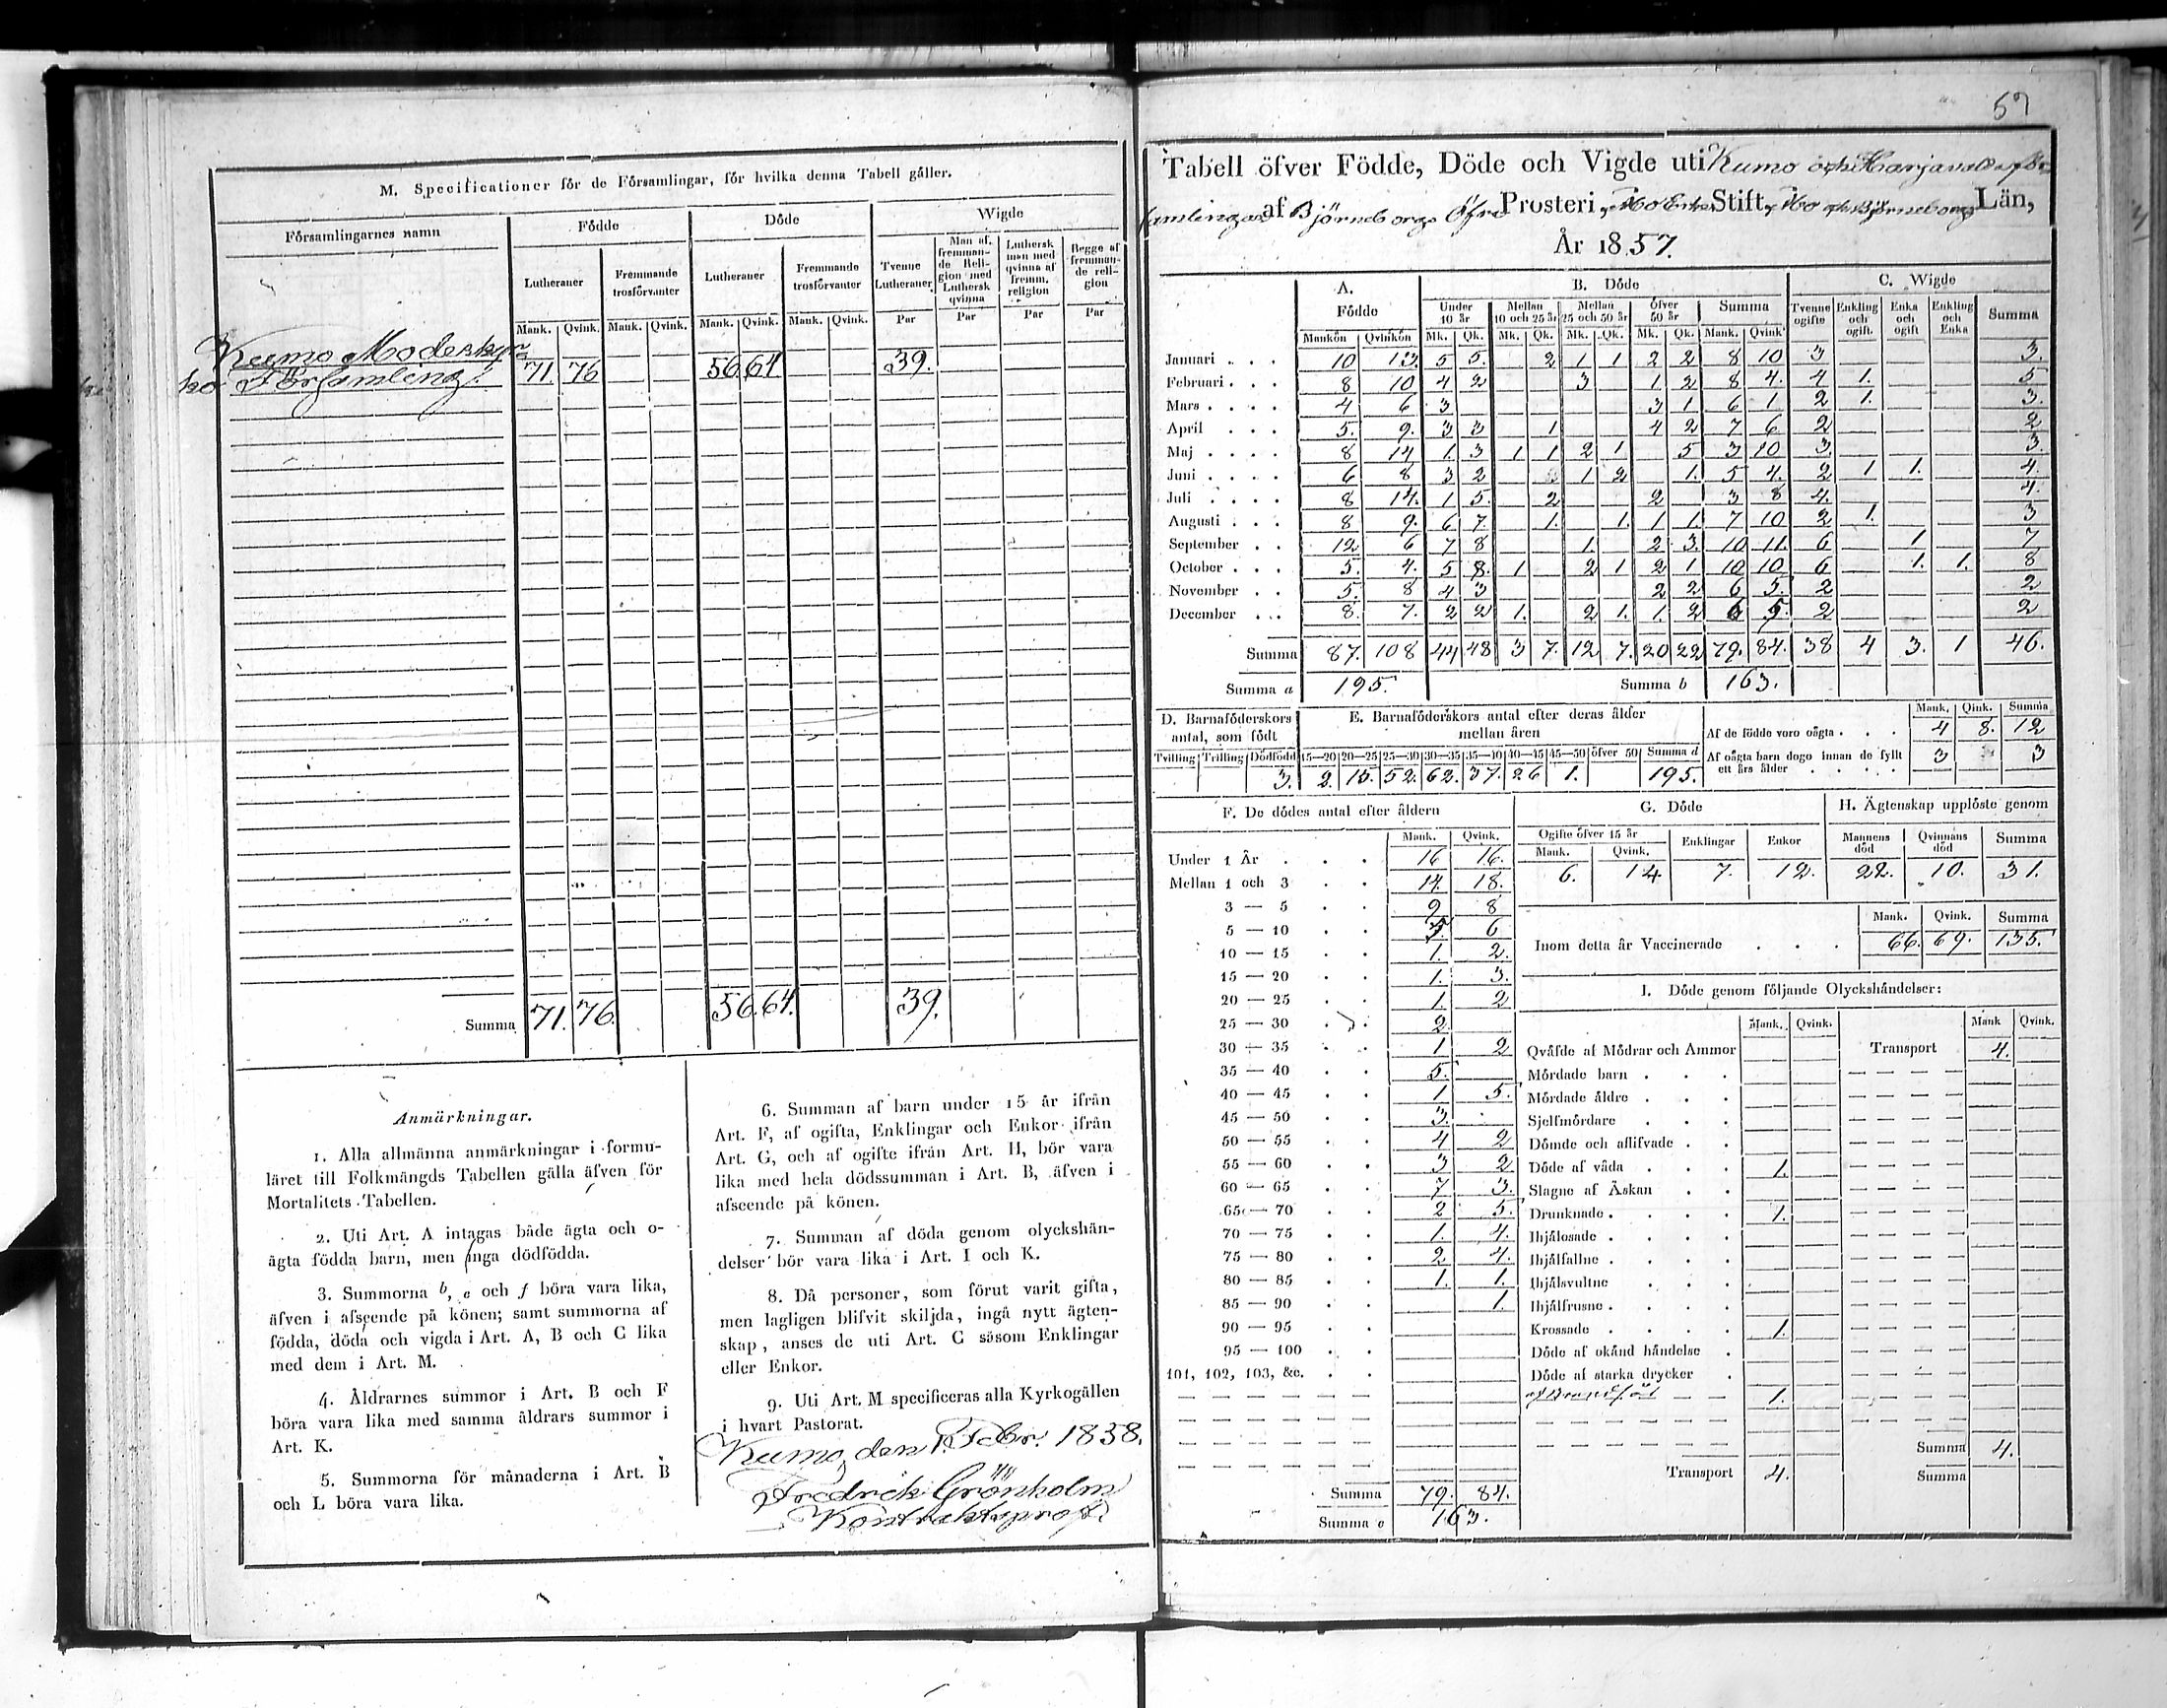 M. Specificationer för de Församlingar, för hvilka denna Tabell gäller.
Församlingarnes namn | Födde | Döde | Wigde
Lutheraner | Fremmande trosförvanter | Lutheraner | Fremmande trosförvanter | Tvenne Lutheraner | Man af fremmande Religion med Luthersk qvinna | Luthersk man med qvinna af fremm. religion | Begge af fremmande religion
Mank. | Qvink. | Mank. | Qvink. | Mank. | Qvink. | Mank. | Qvink. | Par | Par | Par | Par
Kumo Moderkyr
ko Församling. 71. 76 56. 64 39.
Summa 71. 76. 56. 64. 39.
Anmärkningar.
1. Alla allmänna anmärkningar i formu-
läret till Folkmängds Tabellen gälla äfven för
Mortalitets Tabellen.
2. Uti Art. A intagas både ägta och o-
ägta födda barn, men inga dödfödda.
3. Summorna b, c och f böra vara lika,
äfven i afseende på könen; samt summorna af
födda, döda och vigda i Art. A, B och C lika
med dem i Art. M.
4. Åldrarnes summor i Art. B och F
böra vara lika med samma åldrars summor i
Art. K.
5. Summorna för månaderna i Art. B
och L böra vara lika.
6. Summan af barn under 15 år ifrån
Art. F, af ogifta, Enklingar och Enkor ifrån
Art. G, och af ogifte ifrån Art. H, bör vara
lika med hela dödssumman i Art. B, äfven i
afseende på könen.
7. Summan af döda genom olyckshän-
delser bör vara lika i Art. I och K.
8. Då personer, som förut varit gifta,
men lagligen blifvit skiljda, ingå nytt ägten-
skap, anses de uti Art. C såsom Enklingar
eller Enkor.
9. Uti Art. M specificeras alla Kyrkogällen
i hvart Pastorat.
Kumo, den 1. Febr. 1838.
Fredrick Grönholm
Kontraktsprost
57
Tabell öfver Födde, Döde och Vigde uti Kumo och Harjavalda för-
samlingar af Björneborgs Öfre Prosteri, Åbo Erke Stift, Åbo och Björneborgs Län,
År 1837.
A. Födde | B. Döde | C. Wigde
Under 10 år | Mellan 10 och 25 år | Mellan 25 och 50 år | Öfver 50 år | Summa | Tvenne ogifte | Enkling och ogift. | Enka och ogift | Enkling och Enka | Summa
Mankön | Qvinkön | Mk. | Qk. | Mk. | Qk. | Mk. | Qk. | Mk. | Qk. | Mank. | Qvink.
Januari 10 13 5 5. 2 1 1 2 2 8 10 3 3.
Februari 8 10 4 2 3 1 2 8 4. 4 1. 5
Mars 4 6 3 3 1 6 1 2 1. 3.
April 5. 9. 3 3 1 4 2 7 6 2 2
Maj 8 14 1. 3 1 1 2 1 5 3 10 3. 3.
Juni 6 8 3 2 1 2 1. 5 4. 2 1 1. 4.
Juli 8 14. 1 5. 2 2 3 8 4. 4.
Augusti 8 9. 6 7 1. 1. 1 1. 7 10 2 1. 3
September 12 6 7 8 1. 2 3. 10 11. 6 1 7
October 5. 4. 5 8. 1 2 1 2 1 10 10 6 1. 1. 8
November 5. 8 4 3 2 2 6 5. 2 2
December 8. 7. 2 2 1. 2 1. 1. 2 6 5. 2 2
Summa 87. 108 44 48 3 7. 12 7. 20 22 79. 84. 38 4 3. 1 46.
Summa a 195. Summa b 163.
D. Barnaföderskors antal, som födt
Tvilling | Trilling | Dödfödd
3.
E. Barnaföderskors antal efter deras ålder mellan åren
15—20 | 20—25 | 25—30 | 30—35 | 35—40 | 40—45 | 45—50 | öfver 50 | Summa d
2. 15. 52. 62. 37. 26 1. 195.
Mank. | Qink. | Summa
Af de födde voro oägta 4 8. 12
Af oägta barn dogo innan de fyllt ett års ålder 3 3
F. De dödes antal efter åldern
Mank. | Qvink.
Under 1 År 16 16.
Mellan 1 och 3 14. 18.
3 — 5 9 8
5 — 10 5 6
10 — 15 1. 2.
15 — 20 1. 3.
20 — 25 1. 2
25 — 30 2
30 — 35 1 2
35 — 40 5.
40 — 45 1 5.
45 — 50 3.
50 — 55 4 2
55 — 60 3 2
60 — 65 7 3.
65 — 70 2 5.
70 — 75 1. 4.
75 — 80 2 4.
80 — 85 1. 1.
85 — 90 1.
90 — 95
95 — 100
101, 102, 103, &c.
Summa 79. 84.
Summa c 163.
G. Döde
Ogifte öfver 15 år | Enklingar | Enkor
Mank. | Qvink.
6. 14. 7. 12.
H. Ägtenskap upplöste genom
Mannens död | Qvinnans död | Summa
22. 10. 31.
Mank. | Qvink. | Summa
Inom detta år Vaccinerade 66. 69. 135.
I. Döde genom följande Olyckshändelser:
Mank. | Qvink. | Mank | Qvink.
Qväfde af Mödrar och Ammor
Transport 4.
Mördade barn
Mördade äldre
Sjelfmördare
Dömde och aflifvade
Döde af våda 1.
Slagne af Åskan
Drunknade 1.
Ihjälosade
Ihjälfallne
Ihjälsvultne
Ihjälfrusne
Krossade 1.
Döde af okänd händelse
Döde af starka drycker
1.
Summa 4.
Transport 4.
Summa